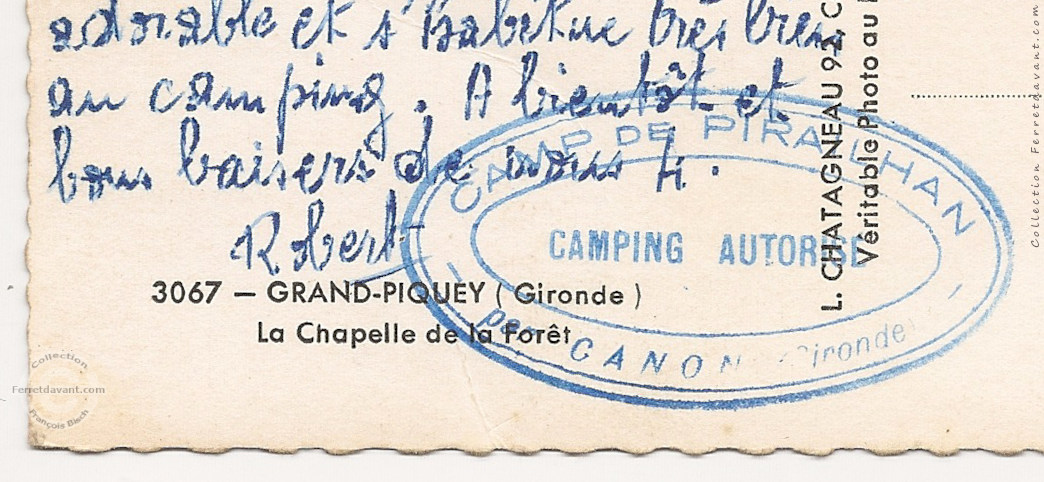 adorable et s'habitue très bien
au camping. A bientôt et
bons baisers de nous 4.
Robert
3067 — GRAND-PIQUEY ( Gironde )
La Chapelle de la Forêt
CAMP DE PIRAILLHAN
CAMPING AUTORISE
par CANON (Gironde)
L. CHATAGNEAU 92, C
Véritable Photo au
Collection Ferretdavant.com
Collection
Ferretdavant.com
François Bisch